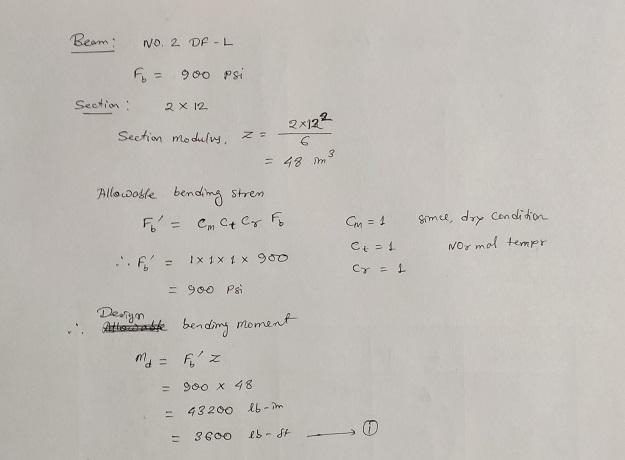 Beam: NO. 2 DF-L
F_b = 900 psi
Section: 2 × 12
Section modulus, Z = 2×12² / 6
= 48 im³
Allowable bending stren
F_b' = C_m C_t C_r F_b    C_m = 1 since, dry condition
∴ F_b' = 1×1×1×900    C_t = 1 Normal tempr
= 900 Psi    C_r = 1
∴ Design bending moment
M_d = F_b' Z
= 900 × 48
= 43200 lb-im
= 3600 lb-ft ⟶ ①